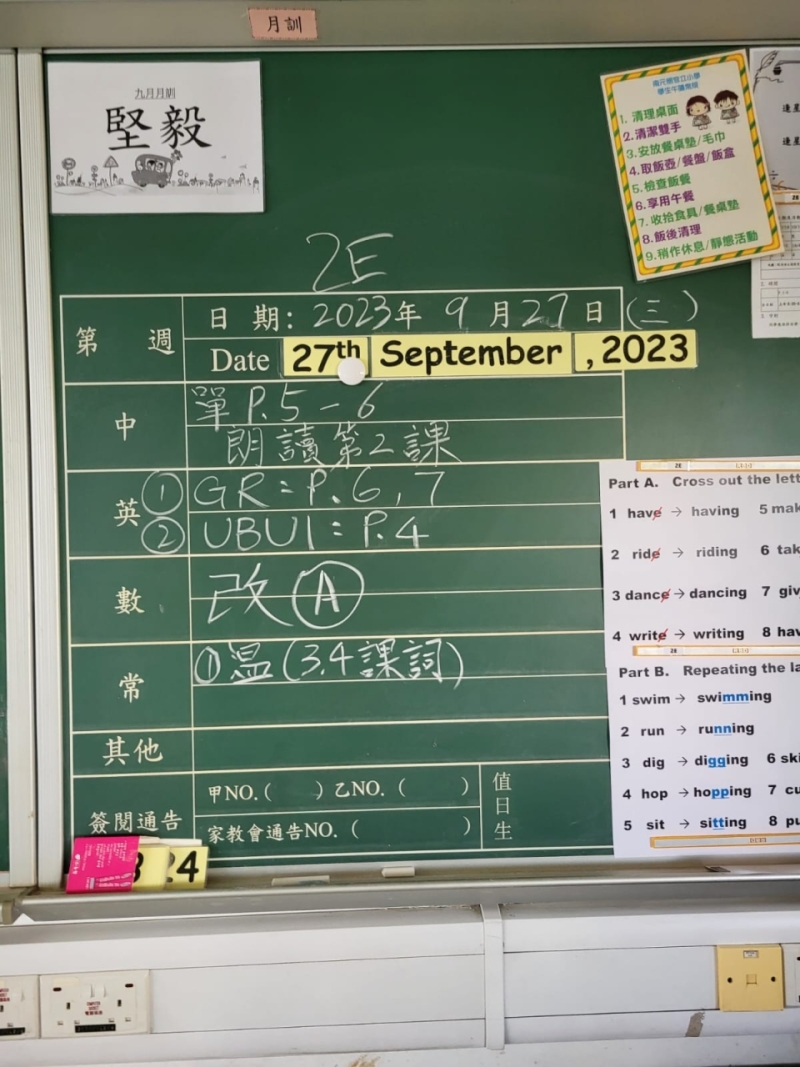 月訓
九月月訓
堅毅
學生午膳流程
1. 清理桌面
2.清潔雙手
3.安放餐桌墊/毛巾
4.取飯壺/餐盤/飯盒
5.檢查飯餐
6.享用午餐
7. 收拾食具/餐桌墊
8.飯後清理
9.稍作休息/靜態活動
2E
第 週
日 期: 2023年 9 月27日 (三)
Date 27th September , 2023
中
單 P.5-6
朗讀第2課
英
① GR = P.6,7
② UBUI = P.4
數
改 Ⓐ
常
①温(3.4課詞)
其他
簽閱通告
甲NO.( ) 乙NO.( )
家教會通告NO.( )
值日生
24
2E
Part A. Cross out the lett
1 have → having 5 mak
2 ride → riding 6 tak
3 dance → dancing 7 giv
4 write → writing 8 hav
Part B. Repeating the la
1 swim → swimming
2 run → running
3 dig → digging 6 ski
4 hop → hopping 7 cu
5 sit → sitting 8 pu